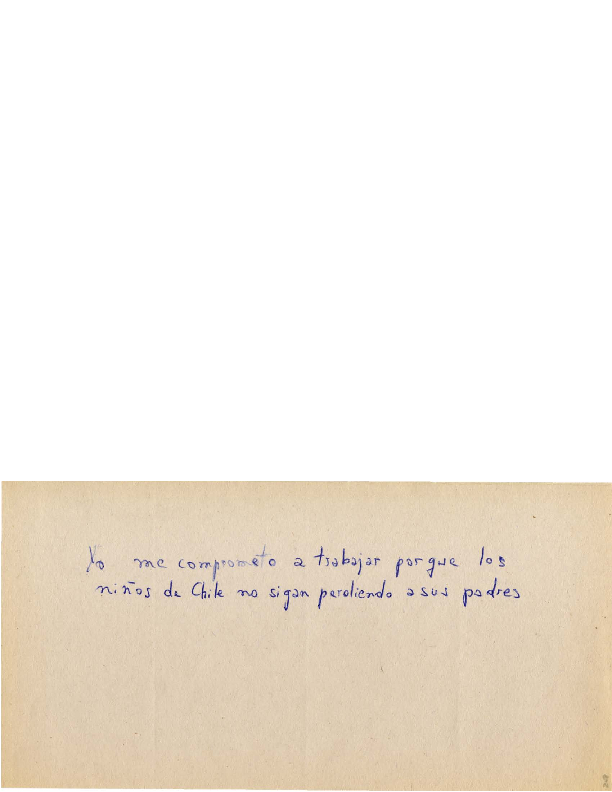 Yo me comprometo a trabajar porque los
niños de Chile no sigan perdiendo a sus padres